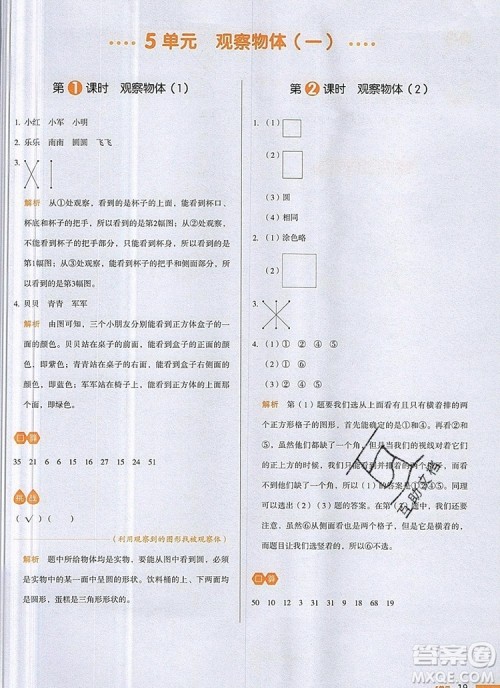 5 单元 观察物体（一）
第 1 课时 观察物体（1）
1. 小红 小军 小明
2. 乐乐 南南 圆圆 飞飞
3.
解析 从①处观察，看到的是杯子的上面，能看到杯口、
杯底和杯子的把手，所以看到的是第2幅图；从②处观察，
不能看到杯子的把手部分，只能看到杯子的侧面，所以看
到的是第1幅图；从③处观察，能看到杯子的把手和侧面部
分，所以看到的是第3幅图。
4. 贝贝 青青 军军
解析 由图可知，三个小朋友分别能看到正方体盒子的一
面的颜色。贝贝站在地上，所以能看到正方体盒子的侧面
的颜色，即紫色；青青站在桌子上，所以能看到正方体盒
子的上面的颜色，即红色；军军站在椅子上，能看到前面的颜色，
即绿色。
口算
35 21 6 6 15 16 9 4 9 7
挑战
（√）（ ）（ ）
（利用观察到的图形找被观察体）
解析 题中所给物体均是实物，要从图中看到圆圆，必须
是实物中的某一面是圆的形状。饮料桶的上、下两面是圆
的形状，蛋糕是三角形形状的。
第 2 课时 观察物体（2）
1. （1）
（2）
（3）圆
（4）相同
2. （1）涂色略
（2）
3.
4. （1）① ② ④ ⑤
（2）① ② ④ ⑤
解析 第（1）题要我们选从上面看有且只有横着排的两
个正方形格子的图形，首先能确定的是（1）的①和
②，虽然它们缺了一个角，但是当我们的视线与它们
的正上方的时候，我们看不到它缺的那一个角，
然后一一对比，可以知道（1）④⑤
也可以选，这就是（1）的答案。第（2）题，同理
可以选出（2）的答案。因为我们从上面看只
能看到竖着的两个格子，所以我们选竖着的就可以了。
口算
50 10 12 3 31 9 18 68 19
互助文档
答案圈
MXQE.COM
19